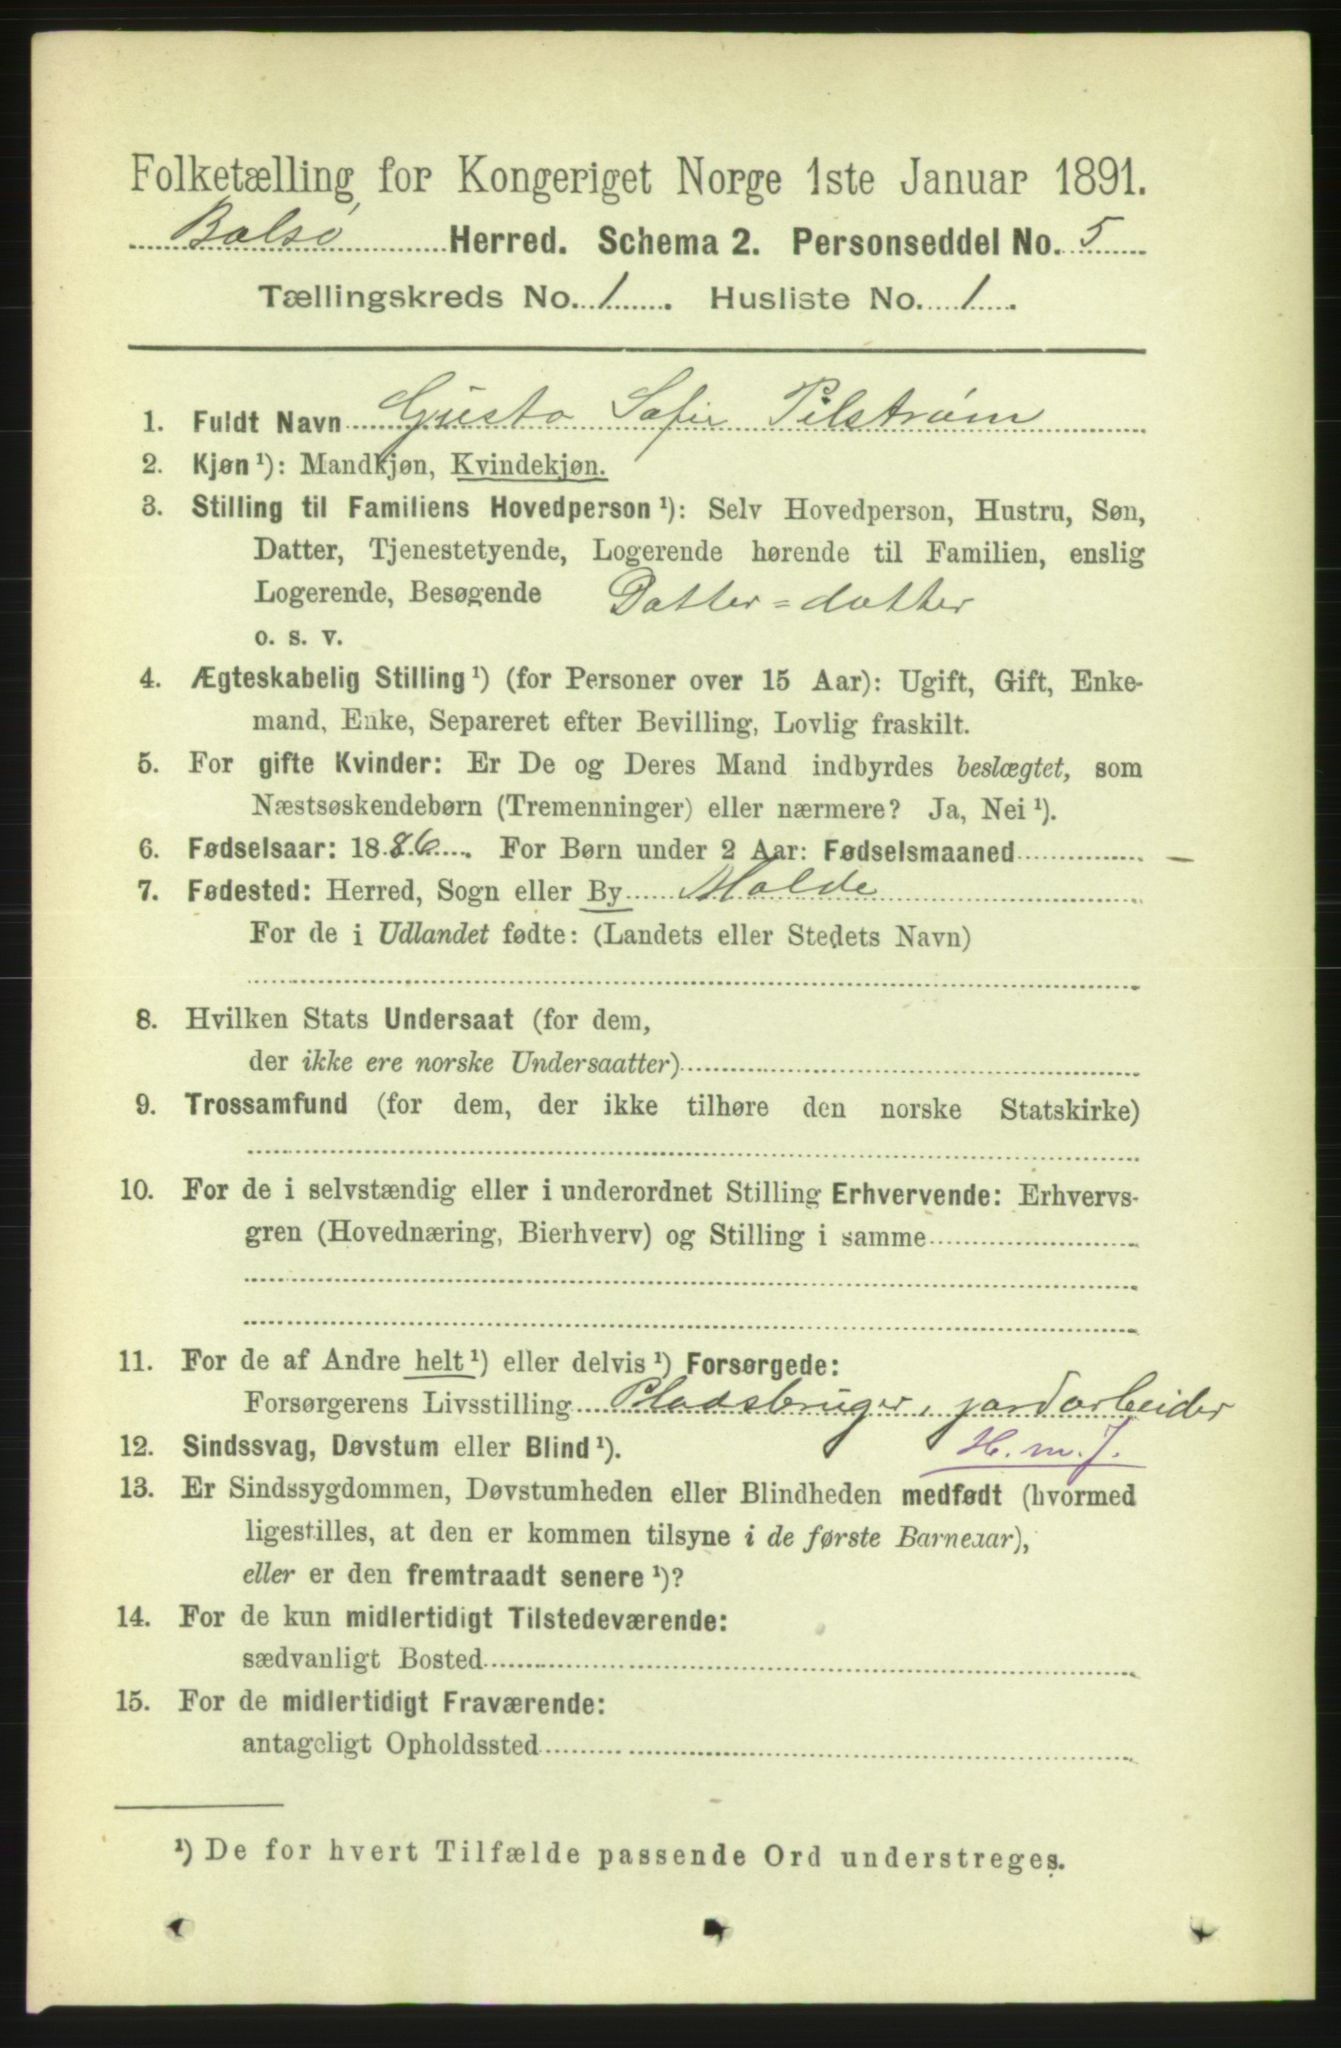 Folketælling for Kongeriget Norge 1ste Januar 1891.
Bolsø Herred. Schema 2. Personseddel No. 5
Tællingskreds No. 1. Husliste No. 1.
1. Fuldt Navn Gusta Sofie Pilstrøm
2. Kjøn ¹): Mandkjøn, Kvindekjøn.
3. Stilling til Familiens Hovedperson ¹): Selv Hovedperson, Hustru, Søn,
Datter, Tjenestetyende, Logerende hørende til Familien, enslig
Logerende, Besøgende Datter=datter
o. s. v.
4. Ægteskabelig Stilling ¹) (for Personer over 15 Aar): Ugift, Gift, Enke-
mand, Enke, Separeret efter Bevilling, Lovlig fraskilt.
5. For gifte Kvinder: Er De og Deres Mand indbyrdes beslægtet, som
Næstsøskendebørn (Tremenninger) eller nærmere? Ja, Nei ¹).
6. Fødselsaar: 1886. For Børn under 2 Aar: Fødselsmaaned —
7. Fødested: Herred, Sogn eller By Molde
For de i Udlandet fødte: (Landets eller Stedets Navn)
8. Hvilken Stats Undersaat (for dem,
der ikke ere norske Undersaatter)
9. Trossamfund (for dem, der ikke tilhøre den norske Statskirke)
10. For de i selvstændig eller i underordnet Stilling Erhvervende: Erhvervs-
gren (Hovednæring, Bierhverv) og Stilling i samme
11. For de af Andre helt ¹) eller delvis ¹) Forsørgede:
Forsørgerens Livsstilling Pladsbruger, jordarbeider
12. Sindssvag, Døvstum eller Blind ¹). H. m. J.
13. Er Sindssygdommen, Døvstumheden eller Blindheden medfødt (hvormed
ligestilles, at den er kommen tilsyne i de første Barneaar),
eller er den fremtraadt senere ¹)?
14. For de kun midlertidigt Tilstedeværende:
sædvanligt Bosted
15. For de midlertidigt Fraværende:
antageligt Opholdssted
¹) De for hvert Tilfælde passende Ord understreges.